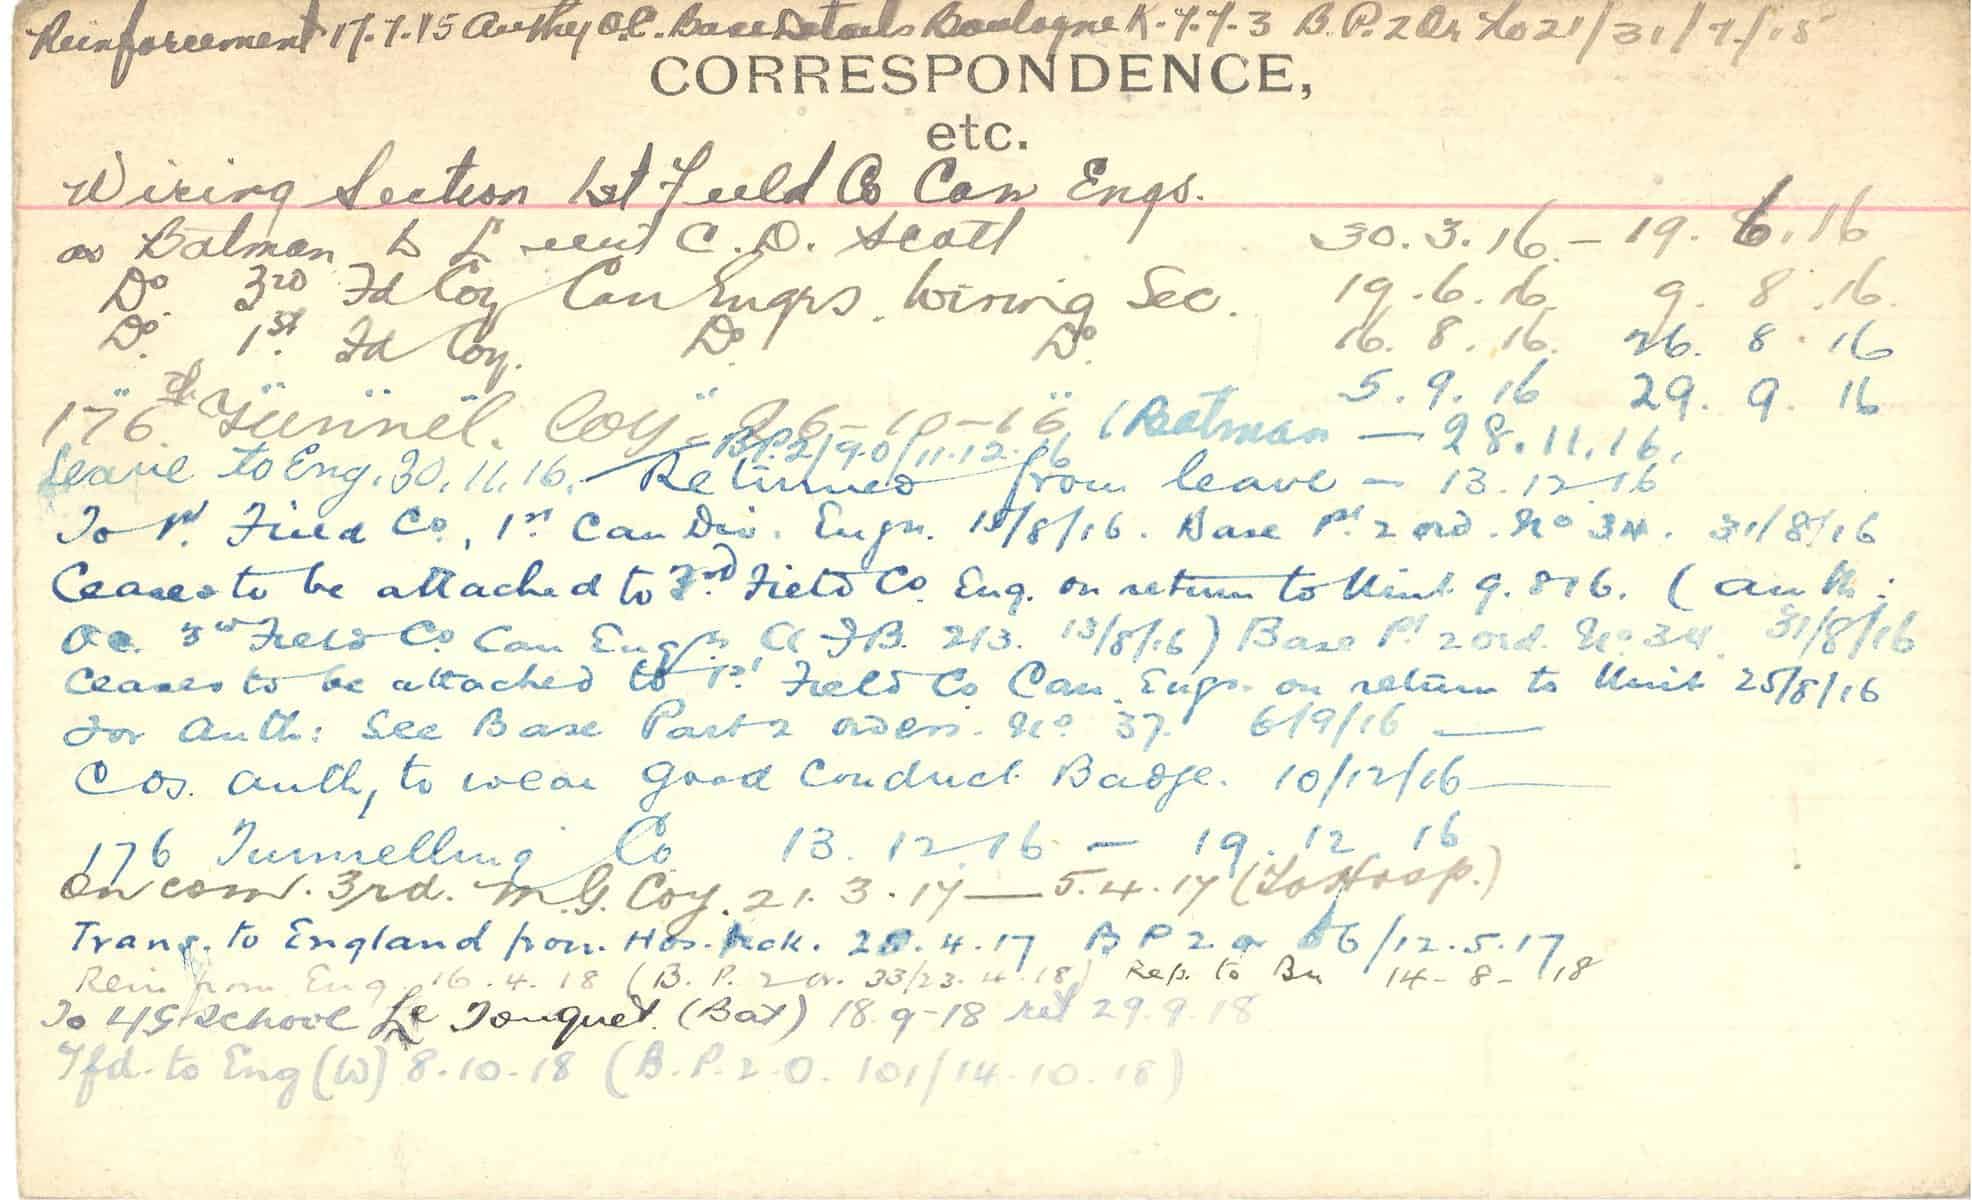 Reinforcement 17.7.15 Authy O.C. Base Details Boulogne K.7.7.3 B.P. 2 Or No 21/31/7/15
CORRESPONDENCE,
etc.
Wiring Section 1st Field Co Can Engs.
as Batman to Lieut C. D. Scott 30.3.16 - 19.6.16
Do. 3rd Fd Coy Can Engrs. Wiring Sec. 19.6.16. 9.8.16.
Do. 1st. Fd Coy. Do. Do. 16.8.16. 26.8.16
5.9.16 29.9.16
176th Tunnel. Coy 26-10-16 (Batman — 28.11.16.
B.P.2/90/11.12.16
Leave to Eng. 30.11.16. — Returned from leave — 13.12.16
To 1st. Field Co, 1st Can Div. Engrs. 15/8/16. Base Pt 2 ord. No 34. 31/8/16
Ceases to be attached to 3rd. Field Co. Eng. on return to Unit 9.8.16. (Auth:
OC. 3rd Field Co Can Engrs. 213. 13/8/16) Base Pt 2 ord. No 34. 31/8/16
Ceases to be attached to 1st Field Co Can. Engs. on return to Unit 25/8/16
For Auth: See Base Part 2 orders. No 37. 6/9/16 —
COs. Auth, to wear Good Conduct Badge. 10/12/16 —
176 Tunnelling Co 13.12.16 — 19.12.16
On com. 3rd. M.G. Coy. 21.3.17 — 5.4.17 (To Hosp.)
Trans. to England from Hos. sick. 4.17 B P 2 or 56/12.5.17
Rein from Eng. 16.4.18 (B.P. 2 or. 33/23.4.18) Rep. to Bn 14-8-18
To 4G School Le Touquet. (Bat) 18-9-18 ret 29.9.18
Tfd. to Eng (W) 8.10.18 (B.P.2.O. 101/14.10.18)